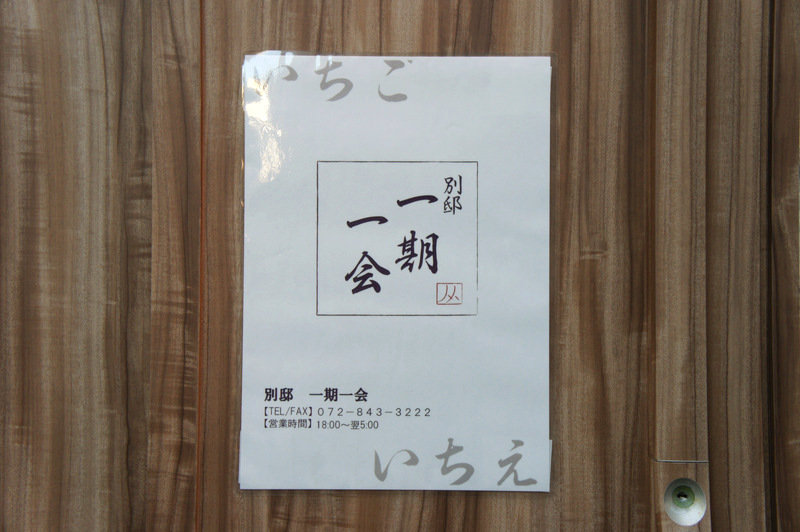 いちご
別邸
一期
一会
別邸 一期一会
【TEL/FAX】072-843-3222
【営業時間】18:00〜翌5:00
いちえ